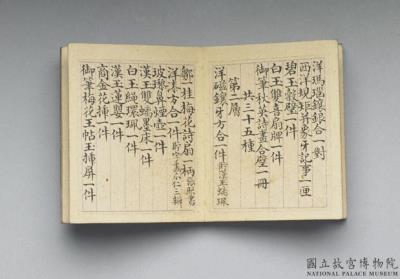 洋瑪瑙鑲銀合一對
西洋規矩并象牙記事一匣
碧玉穀璧一件
白玉雙喜扇牌一件
御筆秋英詩畫合璧一冊
共三十五種
第二層
洋磁鑲牙方合一件
鄒一桂梅花詩扇一柄
洋漆方合一件
玻瓈鼻煙壺一件
漢玉雙蠵墨床一件
白玉繩環珮一件
漢玉蓮嬰一件
商金花插一件
御筆梅花玉帖玉揷屏一件
國立故宮博物院
NATIONAL PALACE MUSEUM